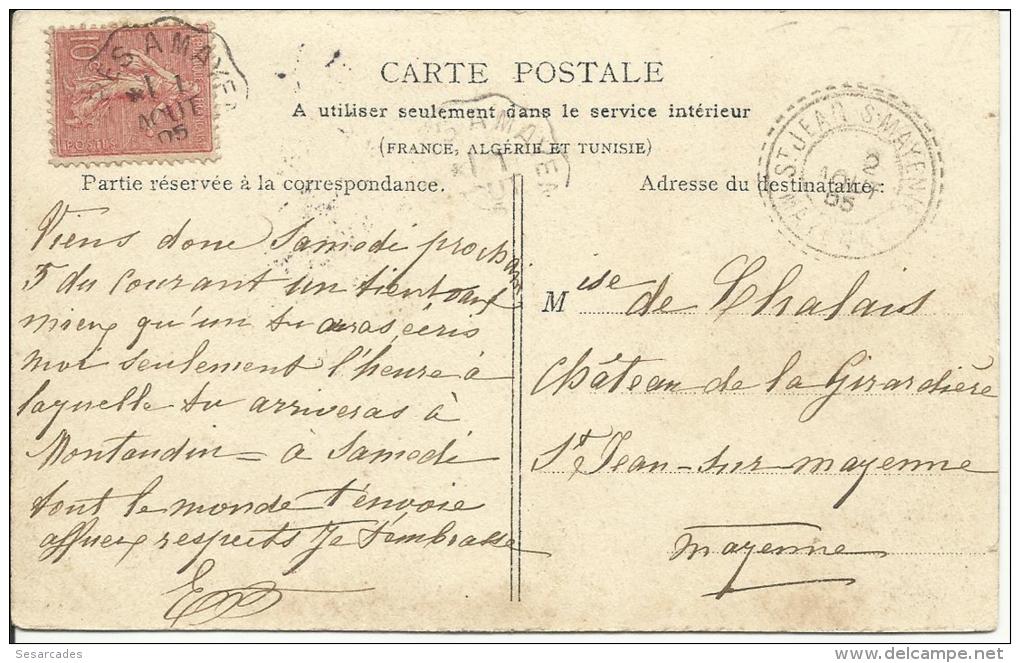 CARTE POSTALE
A utiliser seulement dans le service intérieur
(FRANCE, ALGÉRIE ET TUNISIE)
Partie réservée à la correspondance.
Adresse du destinataire :
10
POSTES
ES A MAYEN
1
AOUT
05
S A MAYEN
ST JEAN S-MAYENNE
2
AOUT
05
MAYENNE
Viens donc Samedi prochain
5 du courant un tient vaut
mieux qu'un tu auras écris
moi seulement l'heure à
laquelle tu arriveras à
Montaudin = à Samedi
tout le monde t'envoie
affueux respects Je t'embrasse
M ise de Chalais
Château de la Girardière
St Jean-sur-mayenne
mayenne
Sesarcades
delcampe.net